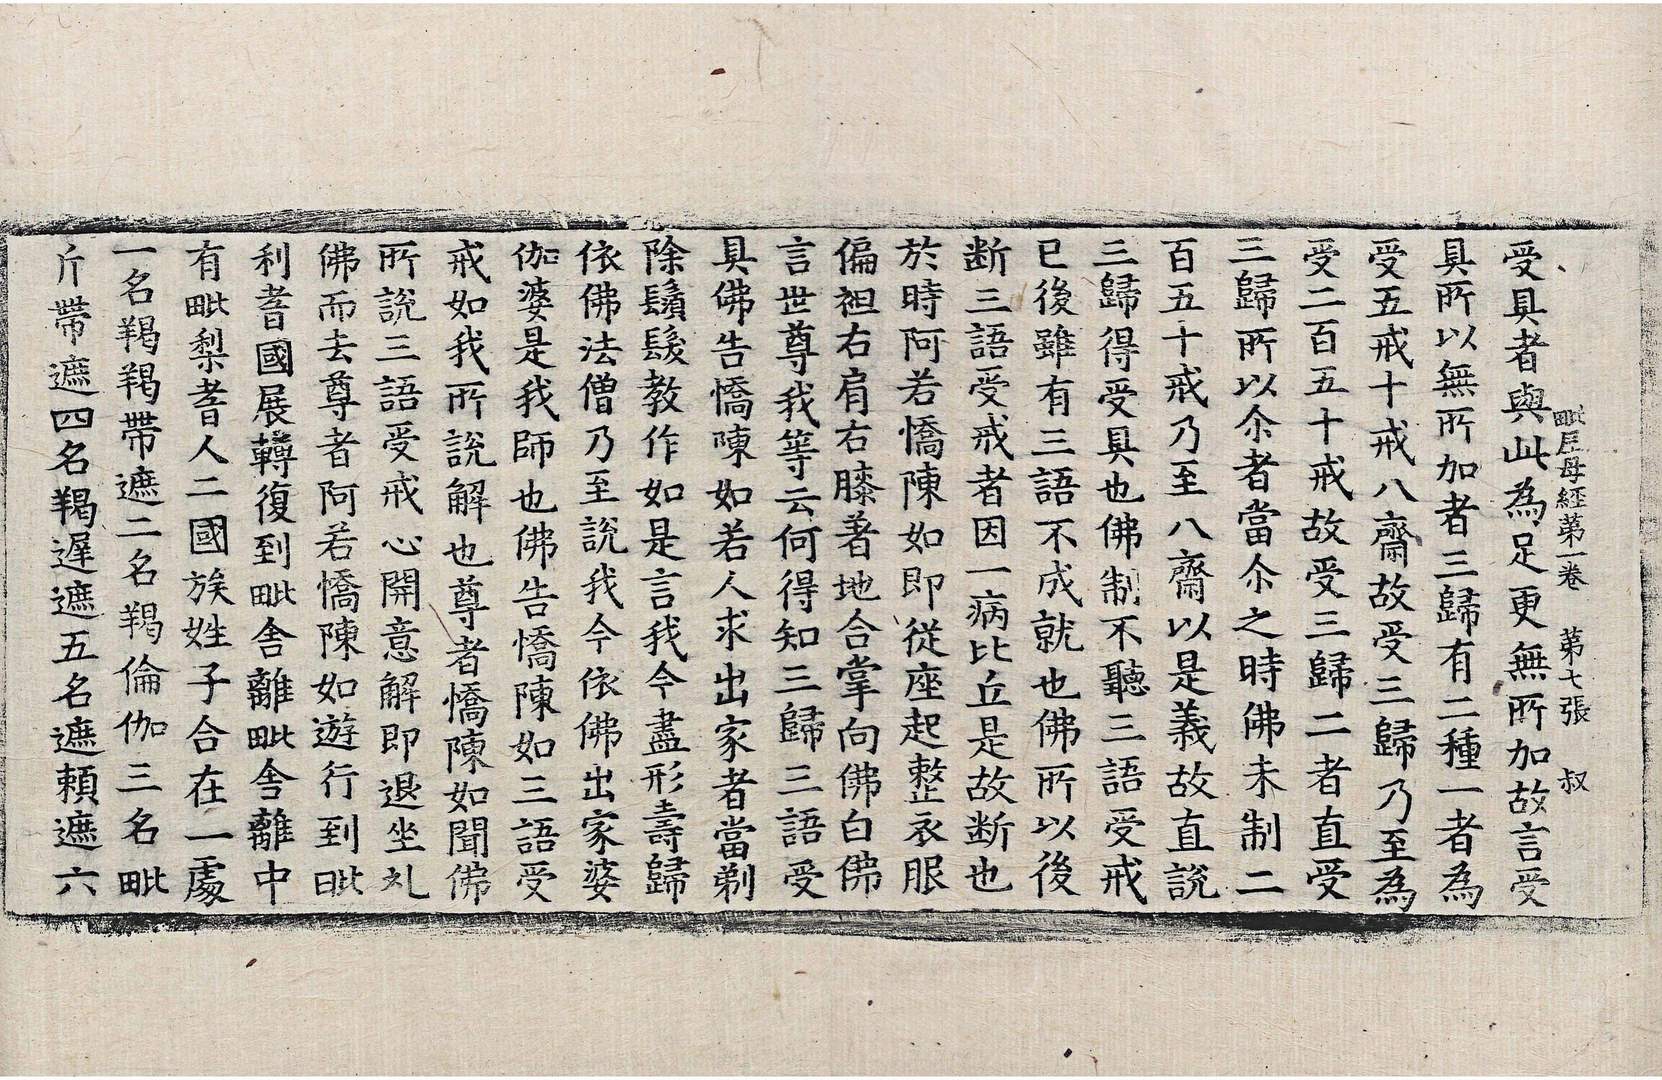 毗尼母經第一卷 第七張 叔
受具者與此為足更無所加故言受
具所以無所加者三歸有二種一者為
受五戒十戒八齋故受三歸乃至為
受二百五十戒故受三歸二者直受
三歸所以尒者當尒之時佛未制二
百五十戒乃至八齋以是義故直說
三歸得受具也佛制不聽三語受戒
已後雖有三語不成就也佛所以後
断三語受戒者因一病比丘是故断也
於時阿若憍陳如即従座起整衣服
偏袒右肩右膝著地合掌向佛白佛
言世尊我等云何得知三歸三語受
具佛告憍陳如若人求出家者當剃
除鬚髮教作如是言我今盡形壽歸
依佛法僧乃至說我今依佛出家婆
伽婆是我師也佛告憍陳如三語受
戒如我所說解也尊者憍陳如聞佛
所說三語受戒心開意解即退坐礼
佛而去尊者阿若憍陳如遊行到毗
利耆國展轉復到毗舍離毗舍離中
有毗梨耆人二國族姓子合在一處
一名羯羯帶遮二名羯倫伽三名毗
斤帶遮四名羯遲遮五名遮頼遮六